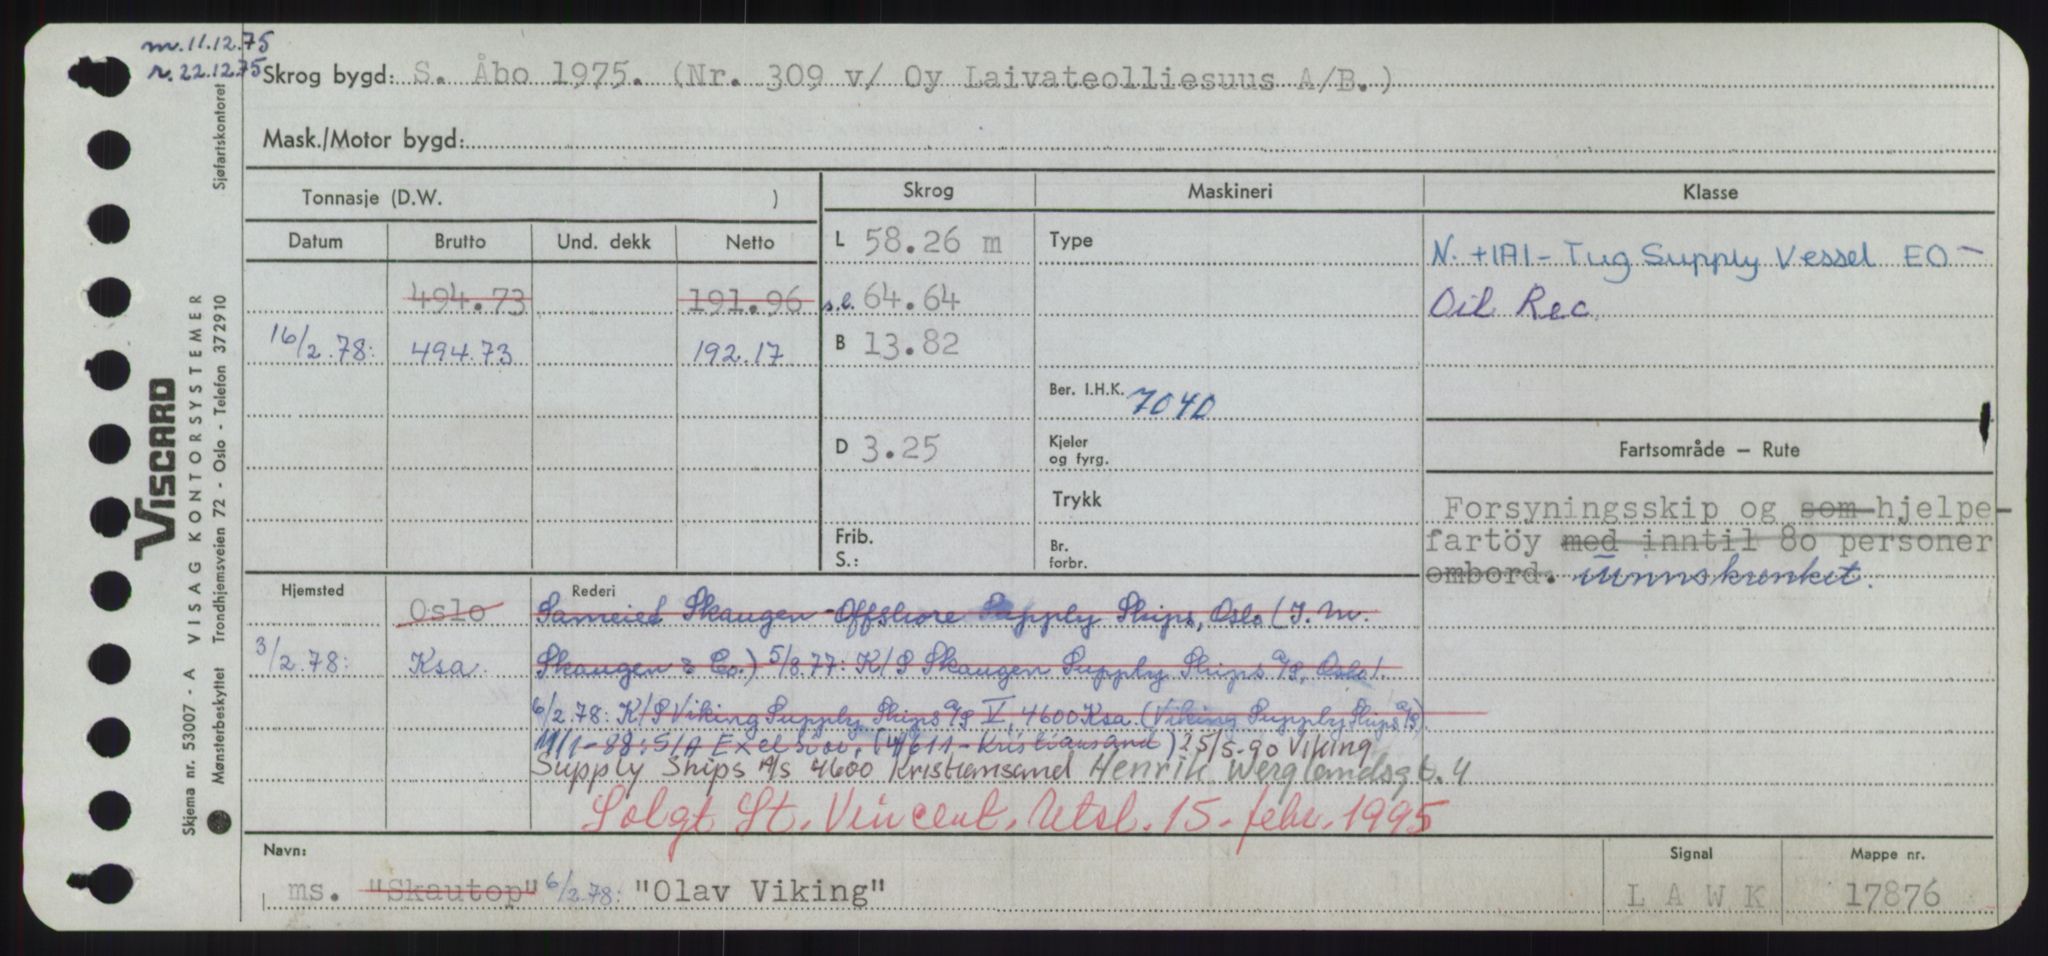 m. 11.12.75
r. 22.12.75
Skrog bygd: S. Åbo 1975. (Nr. 309 v/ Oy Laivateolliesuus A/B.)
Mask./Motor bygd:
Tonnasje (D.W. )
Skrog
Maskineri
Klasse
Datum Brutto Und. dekk Netto
L 58.26 m
Type
N. +1A1 - Tug Supply Vessel EO -
494.73 191.96
s.l. 64.64
Oil Rec
16/2.78: 494.73 192.17
B 13.82
Ber. I.H.K. 7040
D 3.25
Kjeler
og fyrg.
Fartsområde — Rute
Trykk
Forsyningsskip og som hjelpe-
fartöy med inntil 80 personer
ombord. Uinnskrenket.
Frib.
S.:
Br.
forbr.
Hjemsted
Rederi
Oslo Sameiet Skaugen Offshore Supply Ships, Oslo (I. M.
3/2.78: Ksa. Skaugen & Co.) 5/8.77: K/S Skaugen Supply Ships A/S, Oslo).
6/2.78: K/S Viking Supply Ships A/S V, 4600 Ksa. (Viking Supply Ships A/S).
11/1-88: S/A Exelsior, (4611 - Kristiansand) 25/5-90 Viking
Supply Ships A/S 4600 Kristiansand Henrik Werglandsgt. 4
Solgt St. Vincent. Utsl. 15. febr. 1995
Navn:
Signal
Mappe nr.
ms. "Skautop" 6/2.78: "Olav Viking"
L A W K
17876
Skjema nr. 53007 - A VISAG KONTORSYSTEMER
VISCARD
Mønsterbeskyttet Trondhjemsveien 72 - Oslo - Telefon 372910 Sjøfartskontoret